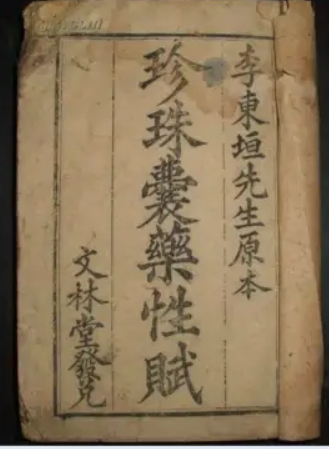 李東垣先生原本
珍珠囊藥性賦
文林堂發兑